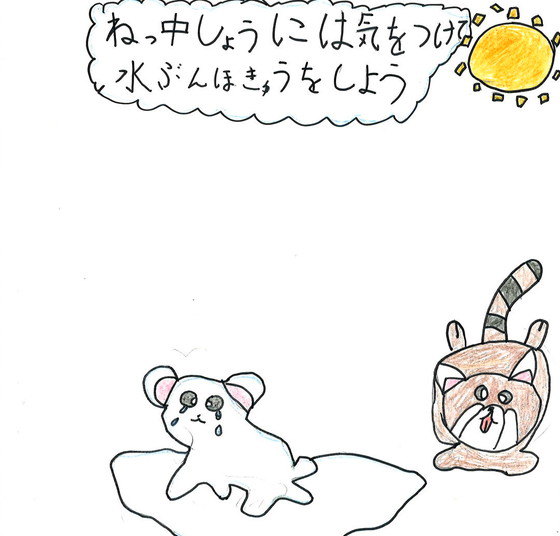 ねっ中しょうには気をつけて
水ぶんほきゅうをしよう